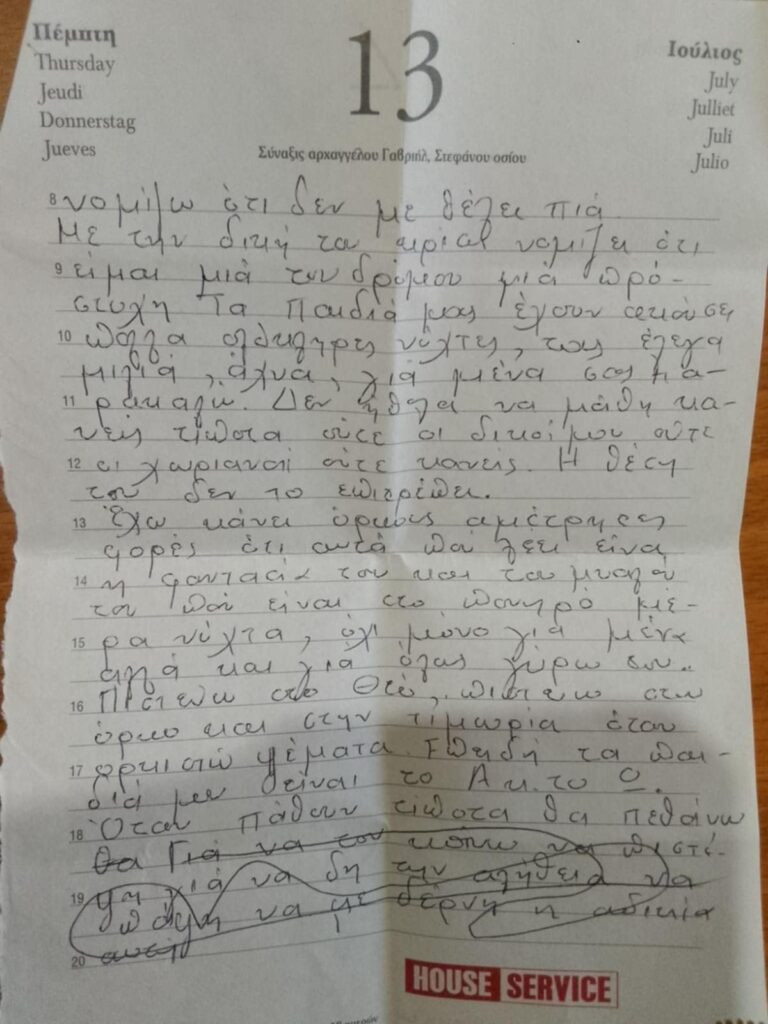 Πέμπτη
Thursday
Jeudi
Donnerstag
Jueves
13
Ιούλιος
July
Julliet
Juli
Julio
Σύναξις αρχαγγέλου Γαβριήλ, Στεφάνου οσίου
8 νομίζω ότι δεν με θέλει πιά
Με την δική του νομίζει ότι
9 είμαι μιά του δρόμου μιά πρό-
στυχη Τα Παιδιά μας έχουν ακούσει
10 πολλά ολόκληρες νύχτες, τους έλεγα
μιλιά, άχνα, γιά μένα σας πα-
11 ρακαλώ. Δεν ήθελα να μάθη κα-
νείς τίποτα ούτε οι δικοί μου ούτε
12 οι χωριανοί ούτε κανείς. Η θέση
του δεν το επιτρέπει.
13 Έχω κάνει όρκους αμέτρητες
φορές ότι αυτά που λέει είναι
14 η φαντασία του και του μυαλού
του που είναι στο πονηρό μέ-
15 ρα νύχτα, όχι μόνο γιά μένα
αλλά και για όλους γύρω του..
16 Πιστεύω στο Θεό, πιστεύω στον
όρκο και στην τιμωρία όταν
17 ορκιστώ ψέματα. Επειδή τα παι-
διά μου είναι το Α κ. το Ω.
18 Όταν πάθουν τίποτα θα πεθάνω
θα Γιά να τον κάνω να πιστέ-
19 ψη γιά να δη την αλήθεια να
πάψη να με δέρνη η αδικία
20 αυτή
HOUSE SERVICE